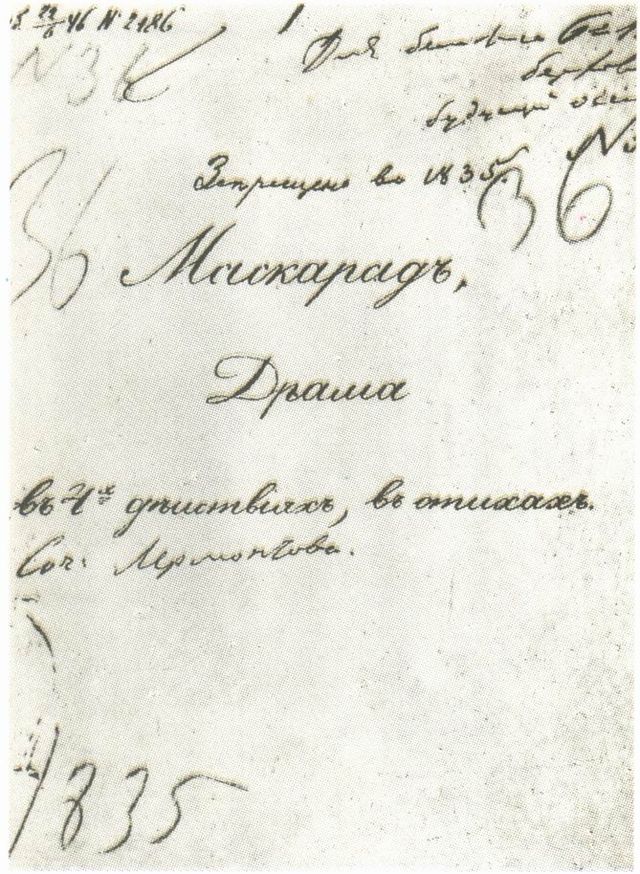 46 № 2186
№ 36
Для
будущей
Запрещено в 1835.
36
36
Маскарадъ,
Драма
въ 4х дѣйствіяхъ, въ стихахъ.
Соч. Лермонтова.
1835